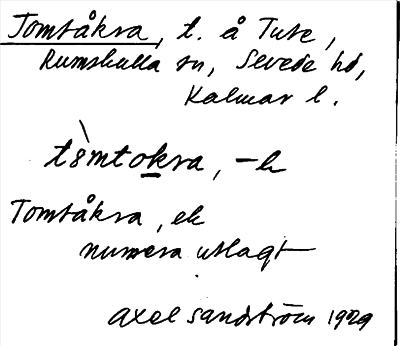 Tomtåkra, t. å Tute,
Rumskulla sn, Sevede hd,
Kalmar l.
tšmtokra, -k
Tomtåkra, ek
numera utlagt
Axel Sandström 1929